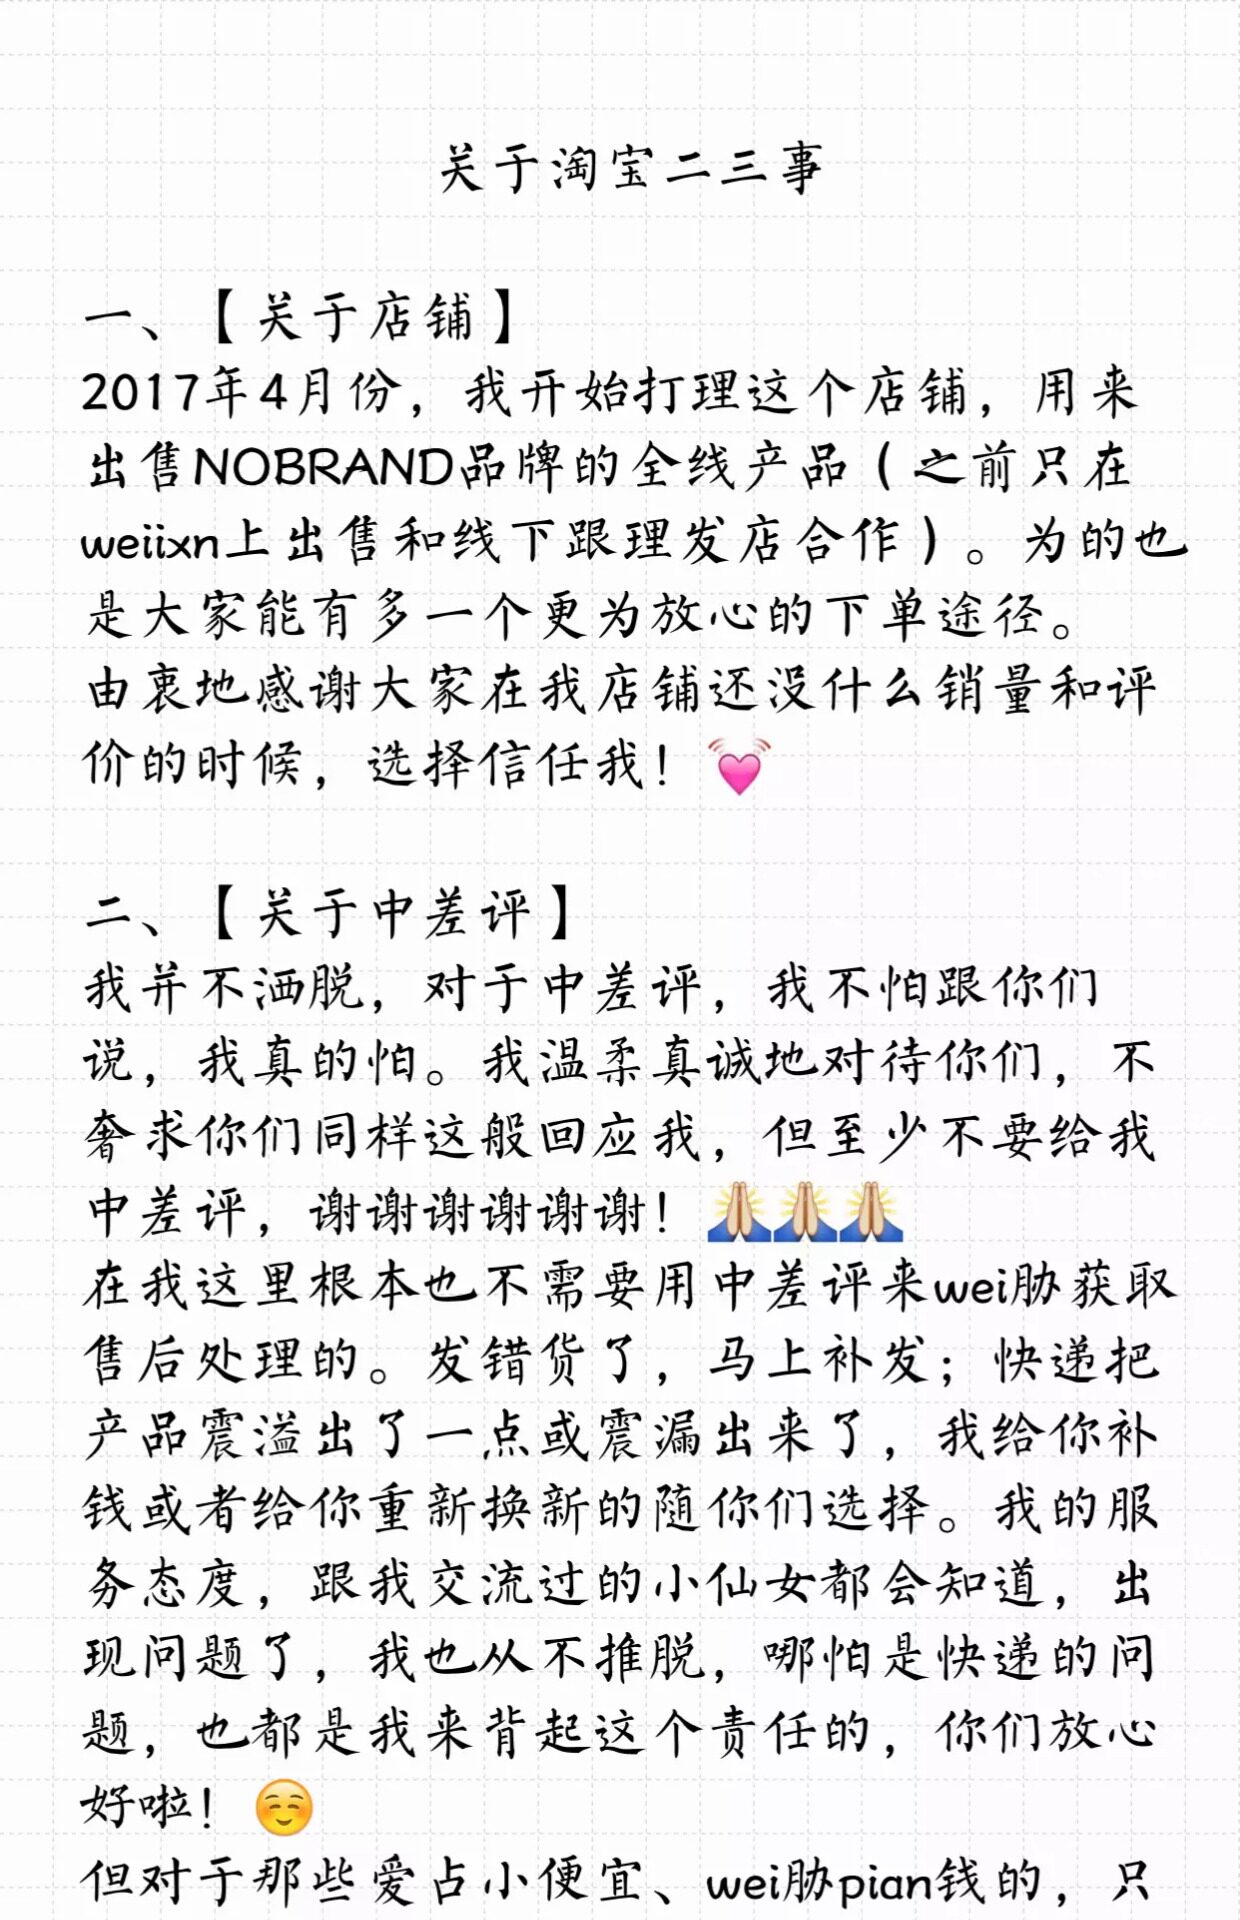 关于淘宝二三事
一、【关于店铺】
2017年4月份，我开始打理这个店铺，用来
出售NOBRAND品牌的全线产品（之前只在
weiixn上出售和线下跟理发店合作）。为的也
是大家能有多一个更为放心的下单途径。
由衷地感谢大家在我店铺还没什么销量和评
价的时候，选择信任我！💓
二、【关于中差评】
我并不洒脱，对于中差评，我不怕跟你们
说，我真的怕。我温柔真诚地对待你们，不
奢求你们同样这般回应我，但至少不要给我
中差评，谢谢谢谢谢谢！🙏🙏🙏
在我这里根本也不需要用中差评来wei胁获取
售后处理的。发错货了，马上补发；快递把
产品震溢出了一点或震漏出来了，我给你补
钱或者给你重新换新的随你们选择。我的服
务态度，跟我交流过的小仙女都会知道，出
现问题了，我也从不推脱，哪怕是快递的问
题，也都是我来背起这个责任的，你们放心
好啦！☺️
但对于那些爱占小便宜、wei胁pian钱的，只